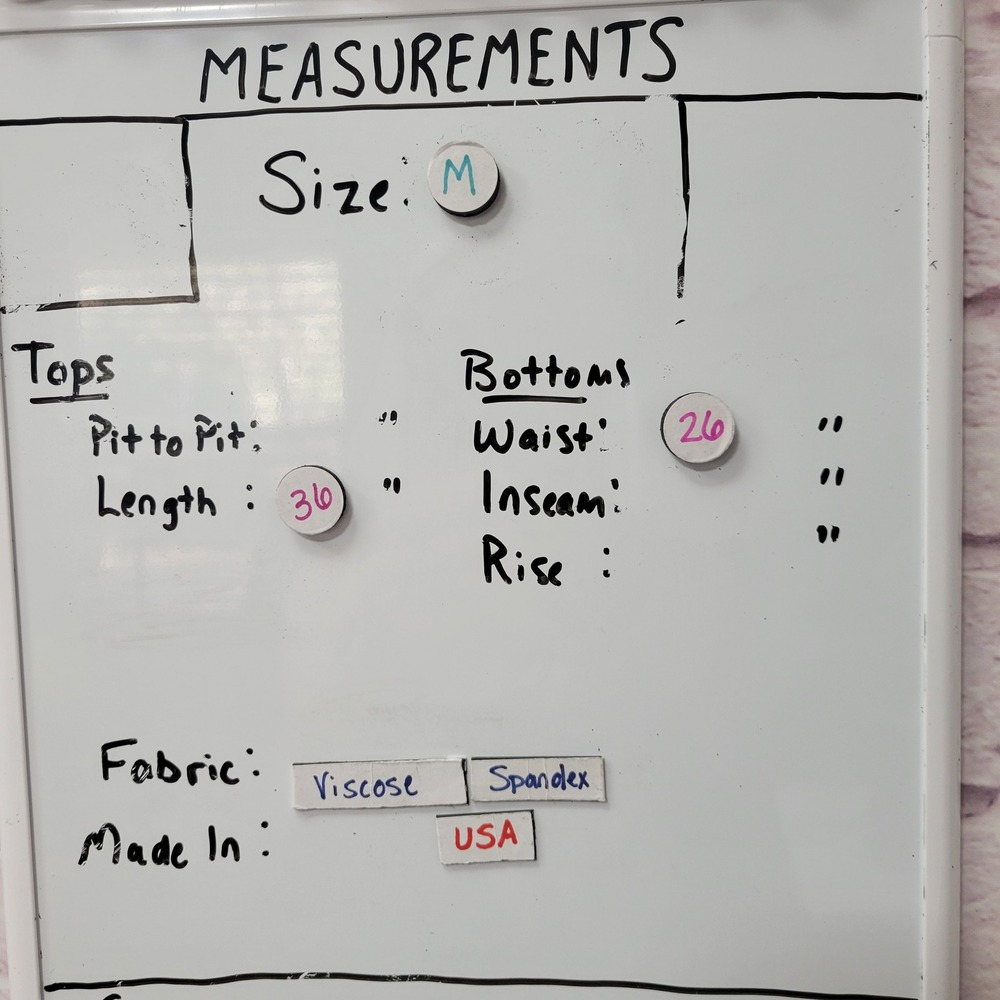 MEASUREMENTS
Size: M
Tops
Pit to Pit: "
Length : 36 "
Bottoms
Waist: 26 "
Inseam: "
Rise : "
Fabric: Viscose Spandex
Made In : USA